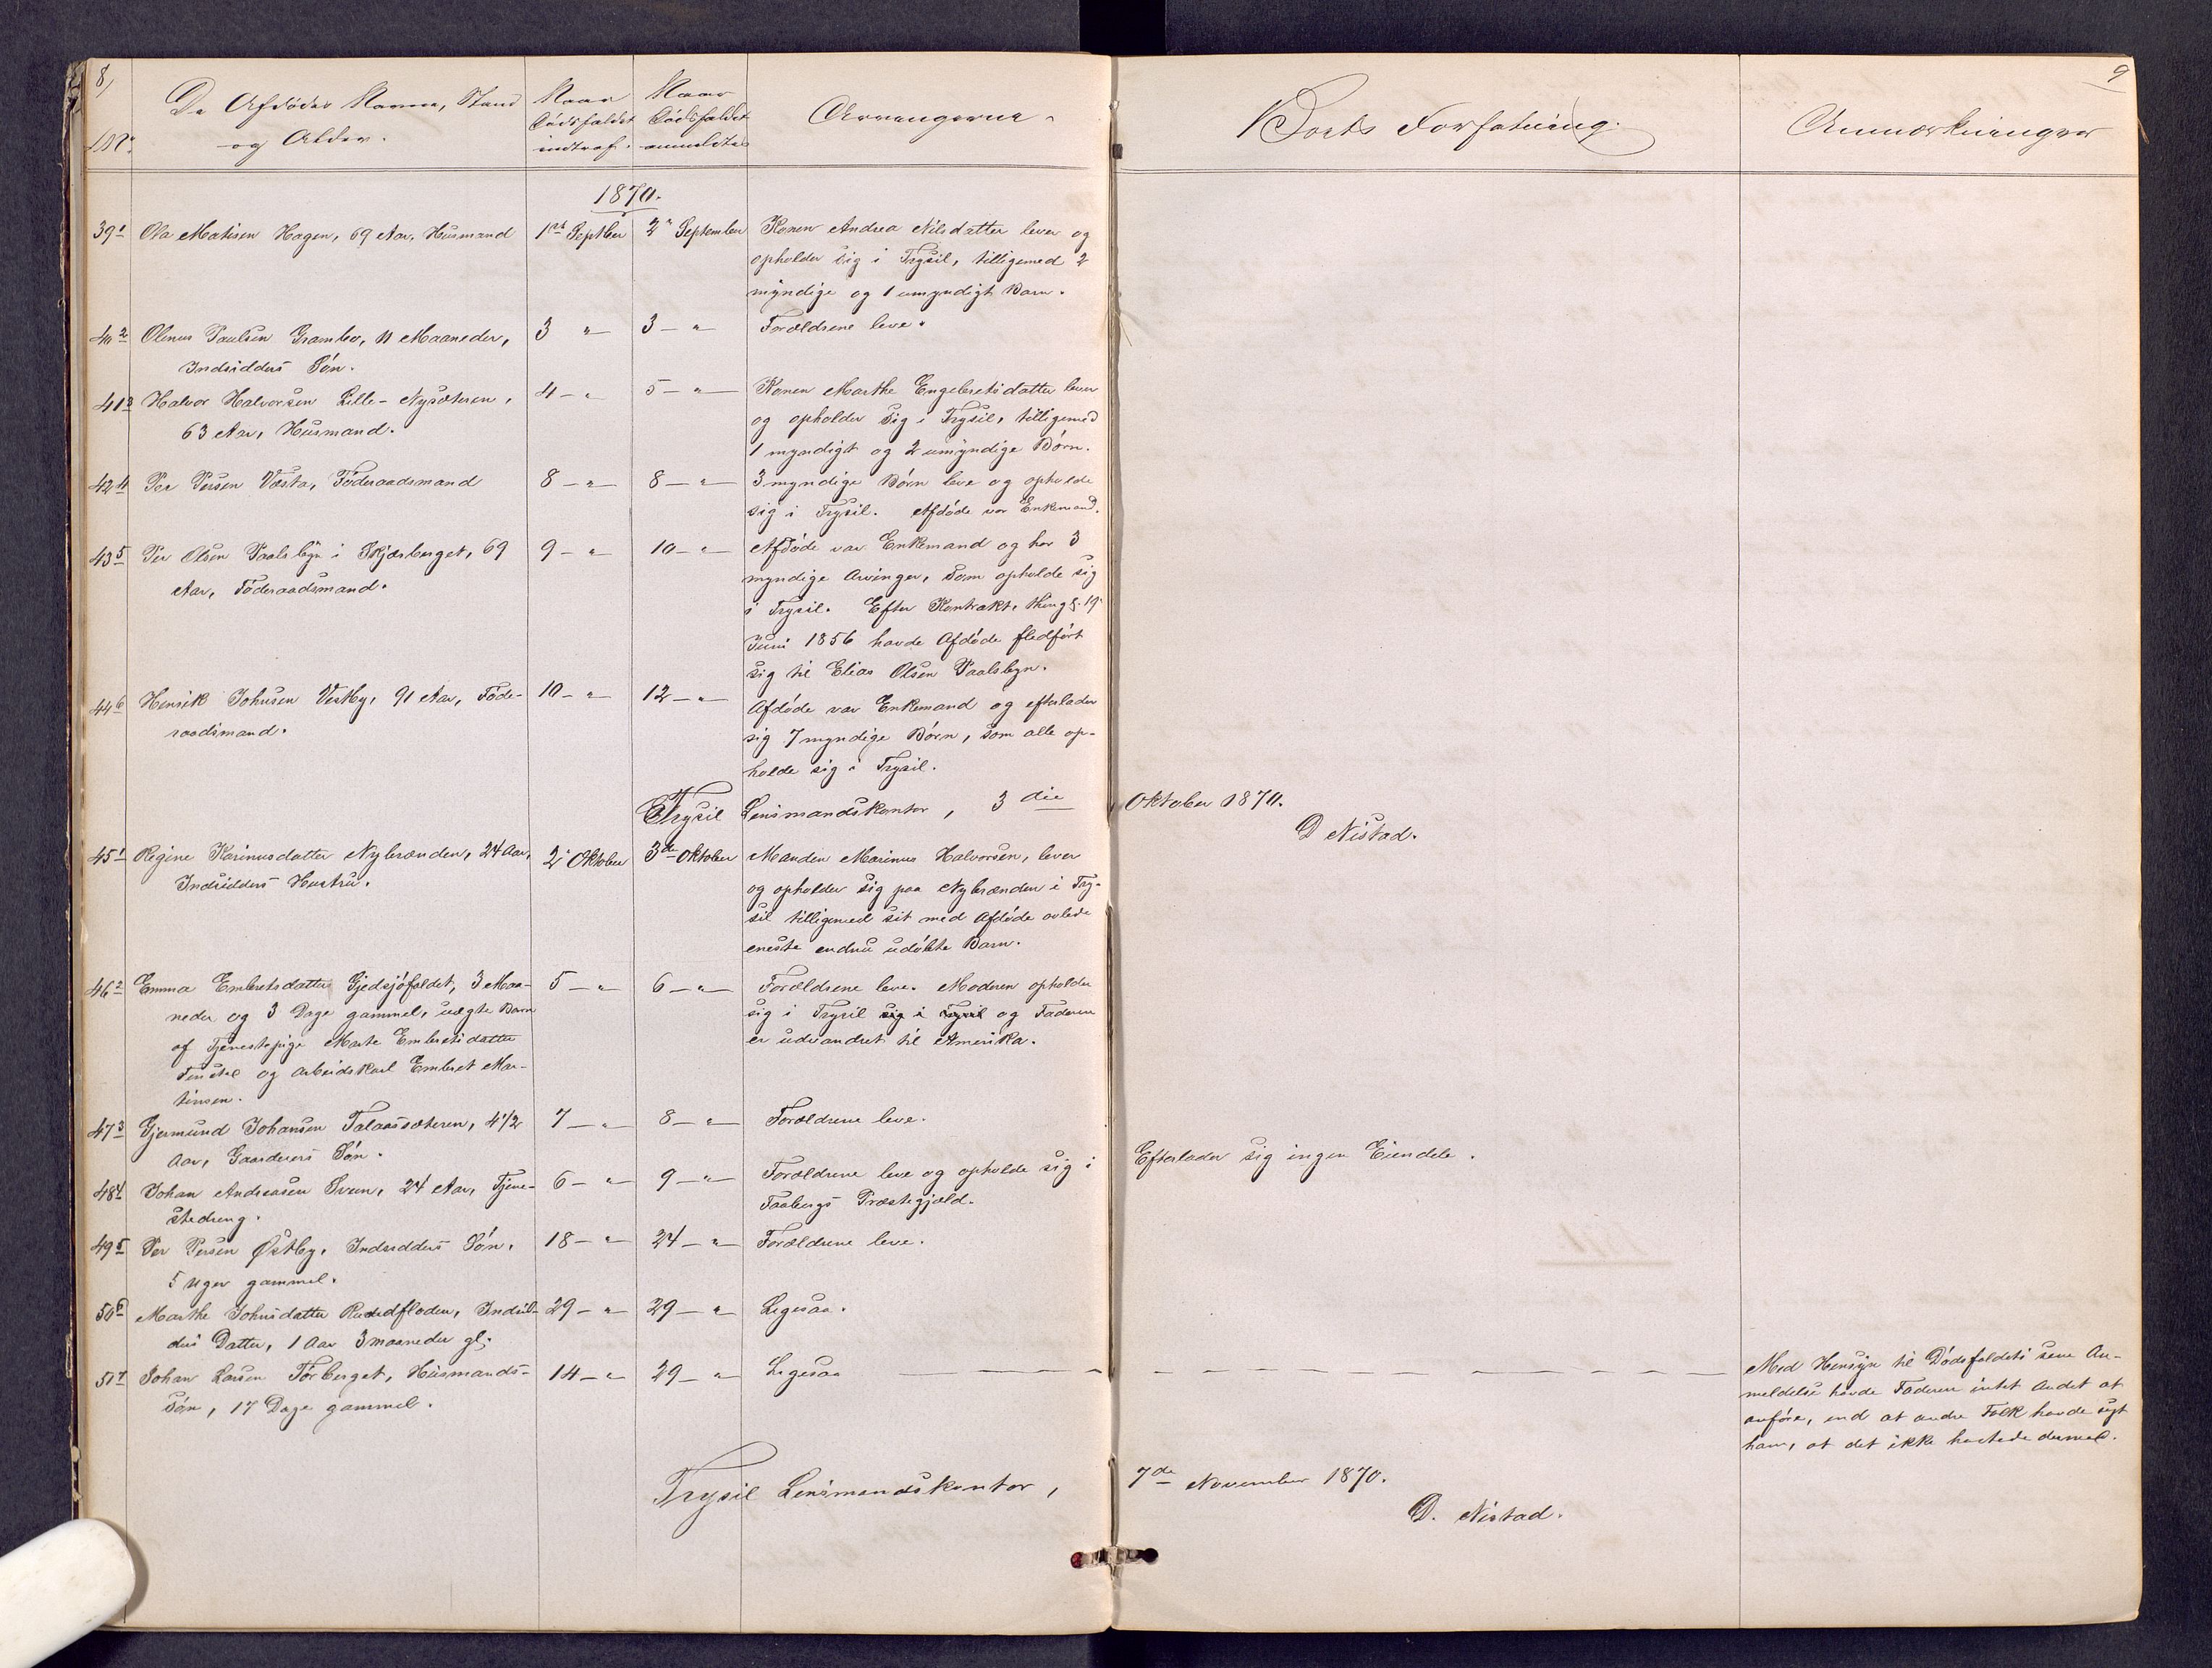 8,
No.
De Afdødes Navne, Stand
og Alder.
Naar
Dødsfaldet
indtraf.
Naar
Dødsfaldet
anmeldtes
Arvingerne.
1870.
39 1 Ola Matisen Hagen, 69 Aar, Husmand
1ste Septber
2n September
Konen Andrea Nilsdatter lever og
opholder sig i Trysil, tilligemed 2
myndige og 1 umyndigt Barn.
40 2 Olenus Paulsen Grambo, 11 Maaneder,
Indsidders Søn.
3 "
3 - " -
Forældrene leve.
41 3 Halvor Halvorsen Lille-Nysæteren,
63 Aar, Husmand.
4 - "
5 - " -
Konen Marthe Engebretsdatter lever
og opholder sig i Trysil, tilligemed
1 myndigt og 2 umyndige Børn.
42 4 Per Persen Væsta, Føderaadsmand
8 - " -
8 - " -
3 myndige Børn leve og opholde
sig i Trysil. Afdøde var Enkemand.
43 5 Per Olsen Paalsbyn i Skjærberget, 69
Aar, Føderaadsmand.
9 - " -
10 - " -
Afdøde var Enkemand og har 3
myndige Arvinger, som opholde sig
i Trysil. Efter Kontrakt, thingl. 19
Juni 1856 havde Afdøde fledført
sig til Elias Olsen Paalsbyn.
44 6 Henrik Johnsen Vestby, 91 Aar, Føde-
raadsmand.
10 - " -
12 - " -
Afdøde var Enkemand og efterlader
sig 7 myndige Børn, som alle op-
holde sig i Trysil.
Trysil Lensmandskontor, 3die
45 1 Regine Karinusdatter Nybrænden, 24 Aar,
Indsidders Hustru.
2 Oktober
3de Oktober
Manden Marinus Halvorsen, lever
og opholder sig paa Nybrænden i Try-
sil tilligemed sit med Afdøde avlede
eneste endnu udøbte Barn.
46 2 Emma Embretsdatter Gjedsjøfaldet, 3 Maa-
neder og 3 Dage gammel, uægte Barn
af Tjenestepige Marte Embretsdatter
og Arbeidskarl Embret Mar-
tinsen.
5 - " -
6 - " -
Forældrene leve. Moderen opholder
sig i Trysil sig i Trysil og Faderen
er udvandret til Amerika.
47 3 Gjermund Johansen Talaassæteren, 4 1/2
Aar, Gaardeiers Søn.
7 - " -
8 - " -
Forældrene leve.
48 4 Johan Andreasen Sveen, 24 Aar, Tjene-
stedreng.
6 - " -
9 - " -
Forældrene leve og opholde sig i
Faabergs Præstegjæld.
49 5 Per Persen Østby, Indsidders Søn,
5 Uger gammel.
18 - " -
24 - "
Forældrene leve.
50 6 Marthe Johnsdatter Rundfloden, Indsid-
ders Datter, 1 Aar 3 maaneder gl.
29 - " -
29 - "
Ligesaa.
51 7 Johan Larsen Tørberget, Husmands-
Søn, 17 Dage gammel.
14 - " -
29 - "
Ligesaa
Trysil Lensmandskontor,
9
Boets Forfatning.
Anmærkninger
Oktober 1870.
D Nistad.
Efterlader sig ingen Eiendele.
Med Hensyn til Dødsfaldets sene An-
meldelse havde Faderen intet Andet at
anføre, end at andre Folk havde sagt
ham, at det ikke hastede dermed.
7de November 1870.
D. Nistad.